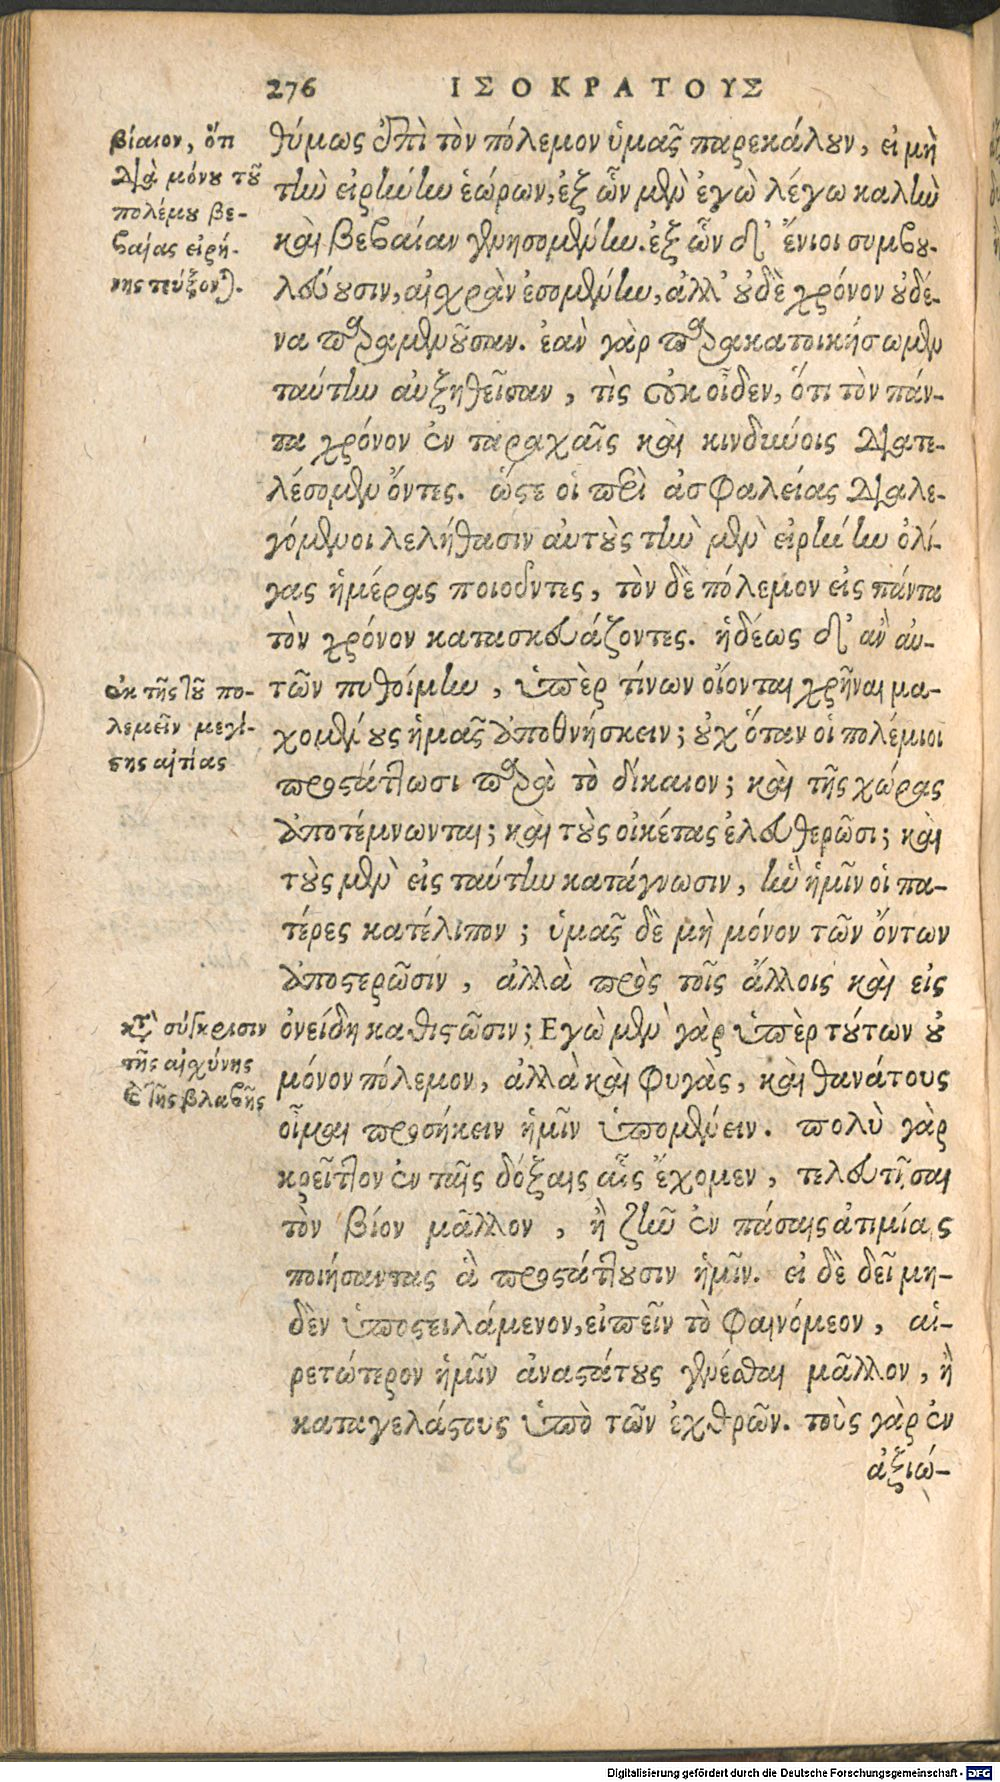 276 ΙΣΟΚΡΑΤΟΥΣ
βίαιον, ὅτι
διὰ μόνου τοῦ
πολέμου βε-
βαίας εἰρή-
νης τεύξονται.
θύμως ἐπὶ τὸν πόλεμον ὑμᾶς παρεκάλουν, εἰ μὴ
τὴν εἰρήνην ἑώρων, ἐξ ὧν μὲν ἐγὼ λέγω καλὴν
καὶ βεβαίαν γενησομένην. ἐξ ὧν δ' ἔνιοι συμβου-
λεύουσιν, αἰσχρὰν ἐσομένην, ἀλλ' οὐδὲ χρόνον οὐδέ-
να παραμενοῦσαν. ἐὰν γὰρ παρακατοικήσωμεν
ταύτην αὐξηθεῖσαν, τὶς οὐκ οἶδεν, ὅτι τὸν πάν-
τα χρόνον ἐν ταραχαῖς καὶ κινδύνοις διατε-
λέσομεν ὄντες. ὥστε οἱ περὶ ἀσφαλείας διαλε-
γόμενοι λελήθασιν αὐτοὺς τὴν μὲν εἰρήνην ὀλί-
γας ἡμέρας ποιοῦντες, τὸν δὲ πόλεμον εἰς πάντα
τὸν χρόνον κατασκευάζοντες. ἡδέως δ' ἂν αὐ-
ἐκ τῆς τοῦ πο-
λεμεῖν μεγί-
στης αἰτίας
τῶν πυθοίμην, ὑπὲρ τίνων οἴονται χρῆναι μα-
χομένους ἡμᾶς ἀποθνήσκειν; οὐχ ὅταν οἱ πολέμιοι
προστάττωσι παρὰ τὸ δίκαιον; καὶ τῆς χώρας
ἀποτέμνωνται; καὶ τοὺς οἰκέτας ἐλευθερῶσι; καὶ
τοὺς μὲν εἰς ταύτην κατάγνωσιν, ἣν ἡμῖν οἱ πα-
τέρες κατέλιπον; ὑμᾶς δὲ μὴ μόνον τῶν ὄντων
ἀποστερῶσιν, ἀλλὰ πρὸς τοῖς ἄλλοις καὶ εἰς
κατὰ σύγκρισιν
τῆς αἰσχύνης
καὶ τῆς βλάβης
ὀνείδη καθιστῶσιν; Εγὼ μὲν γὰρ ὑπὲρ τούτων οὐ
μόνον πόλεμον, ἀλλὰ καὶ φυγὰς, καὶ θανάτους
οἶμαι προσήκειν ἡμῖν ὑπομένειν. πολὺ γὰρ
κρεῖττον ἐν ταῖς δόξαις αἷς ἔχομεν, τελευτῆσαι
τὸν βίον μᾶλλον, ἢ ζῆν ἐν πάσαις ἀτιμίαις
ποιήσαντας ἃ προστάττουσιν ἡμῖν. εἰ δὲ δεῖ μη-
δὲν ὑποστειλάμενον, εἰπεῖν τὸ φαινόμεον, αἱ-
ρετώτερον ἡμῖν ἀναστάτους γενέσθαι μᾶλλον, ἢ
καταγελάστους ὑπὸ τῶν ἐχθρῶν. τοὺς γὰρ ἐν
ἀξιώ-
Digitalisierung gefördert durch die Deutsche Forschungsgemeinschaft - DFG